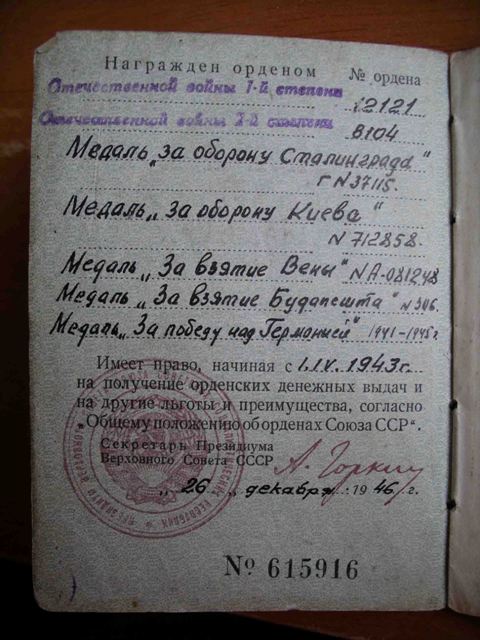 Награжден орденом № ордена
Отечественной войны 1-й степени 12121
Отечественной войны 2-й степени 8104
Медаль „за оборону Сталинграда"
Г N 37115.
Медаль „За оборону Киева"
N 712858.
Медаль „За взятие Вены" N А-081248
Медаль „За взятие Будапешта" N 306.
Медаль „За победу над Германией" 1941-1945г
Имеет право, начиная с 1.IV.1943г.
на получение орденских денежных выдач и
на другие льготы и преимущества, согласно
„Общему положению об орденах Союза ССР".
Секретарь Президиума
Верховного Совета СССР А. Горкин
„26" декабря 1946 г.
№ 615916